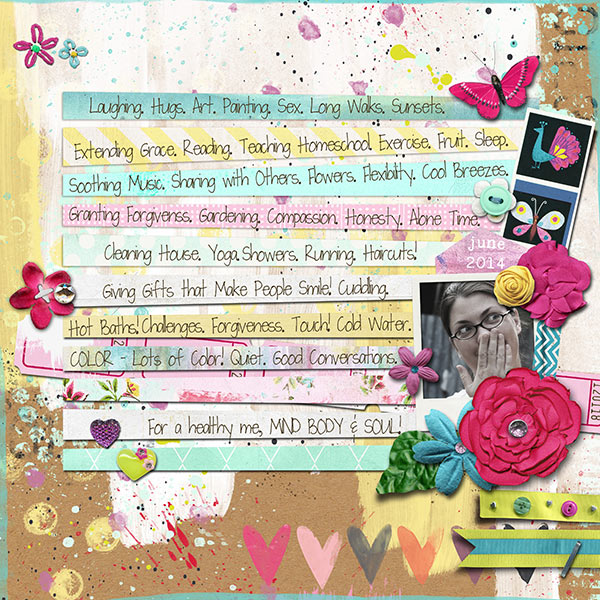 Laughing. Hugs. Art. Painting. Sex. Long Walks. Sunsets.
Extending Grace. Reading. Teaching Homeschool. Exercise. Fruit. Sleep.
Soothing Music. Sharing with Others. Flowers. Flexibility. Cool Breezes.
Granting Forgivenss. Gardening. Compassion. Honesty. Alone Time.
june
2014
Cleaning House. Yoga.Showers. Running. Haircuts!
Giving Gifts that Make People Smile! Cuddling.
Hot Baths!Challenges. Forgiveness. Touch! Cold Water.
COLOR - Lots of Color! Quiet. Good Conversations.
For a healthy me, MIND BODY & SOUL!